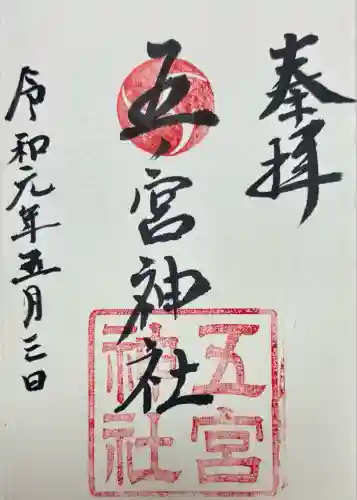 奉拝
五宮神社
五宮
神社
令和元年五月三日